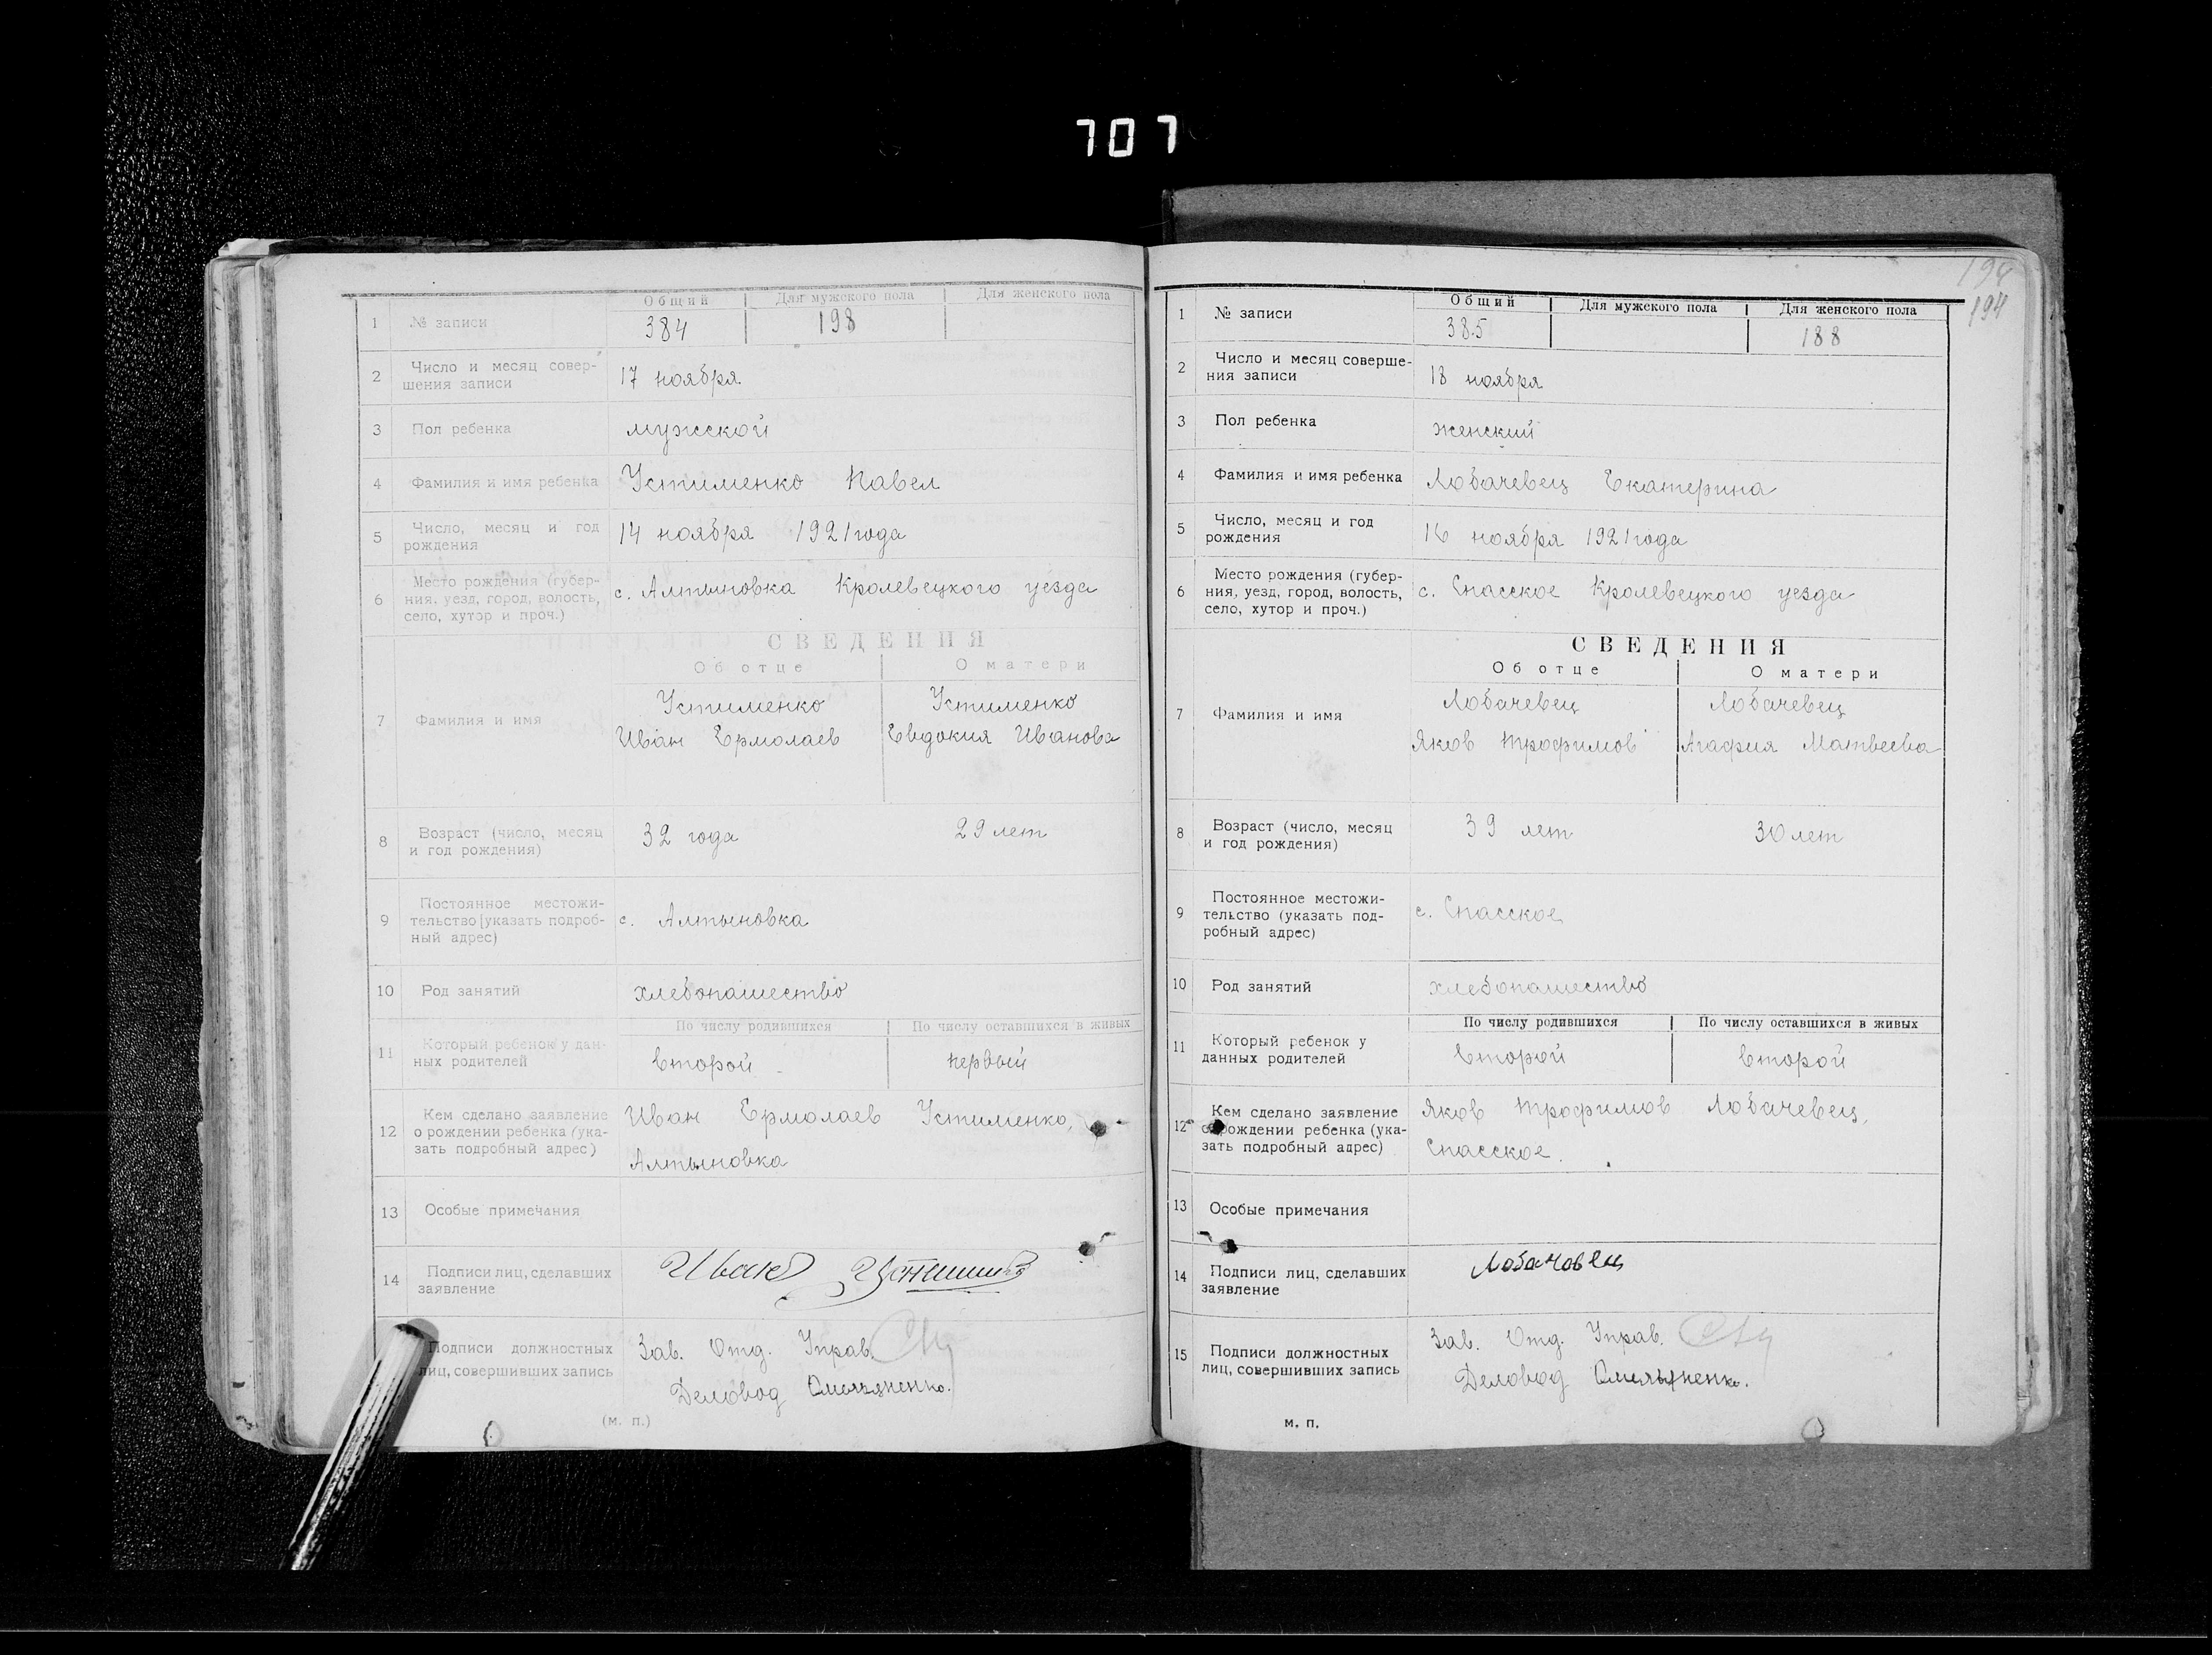 707
Общий Для мужского пола Для женского пола
1 № записи 384 198
2 Число и месяц совер-
шения записи 17 ноября
3 Пол ребенка мужской
4 Фамилия и имя ребенка Устименко Павел
5 Число, месяц и год
рождения 14 ноября 1921 года
6 Место рождения (губер-
ния, уезд, город, волость,
село, хутор и проч.) с. Алтыновка Кролевецкого уезда
СВЕДЕНИЯ
Об отце О матери
7 Фамилия и имя Устименко Устименко
Иван Ермолаев Евдокия Иванова
8 Возраст (число, месяц
и год рождения) 32 года 29 лет
9 Постоянное местожи-
тельство (указать подроб-
ный адрес) с. Алтыновка
10 Род занятий хлебопашество
По числу родившихся По числу оставшихся в живых
11 Который ребенок у дан-
ных родителей второй первый
12 Кем сделано заявление
о рождении ребенка (ука-
зать подробный адрес) Иван Ермолаев Устименко,
Алтыновка
13 Особые примечания
14 Подписи лиц, сделавших
заявление Иван
Подписи должностных
лиц, совершивших запись Зав. Отд. Управ.
Деловод Омельяненко.
(м. п.)
194
194
Общий Для мужского пола Для женского пола
1 № записи 385 188
2 Число и месяц соверше-
ния записи 18 ноября
3 Пол ребенка женский
4 Фамилия и имя ребенка Лобачевец Екатерина
5 Число, месяц и год
рождения 16 ноября 1921 года
6 Место рождения (губер-
ния, уезд, город, волость,
село, хутор и проч.) с. Спасское Кролевецкого уезда
СВЕДЕНИЯ
Об отце О матери
7 Фамилия и имя Лобачевец Лобачевец
Яков Трофимов Агафия Матвеева
8 Возраст (число, месяц
и год рождения) 39 лет 30 лет
9 Постоянное местожи-
тельство (указать под-
робный адрес) с. Спасское
10 Род занятий хлебопашество
По числу родившихся По числу оставшихся в живых
11 Который ребенок у
данных родителей второй второй
12 Кем сделано заявление
о рождении ребенка (ука-
зать подробный адрес) Яков Трофимов Лобачевец,
Спасское.
13 Особые примечания
14 Подписи лиц, сделавших
заявление Лобачовец
15 Подписи должностных
лиц, совершивших запись Зав. Отд. Управ.
Деловод Омельяненко.
м. п.